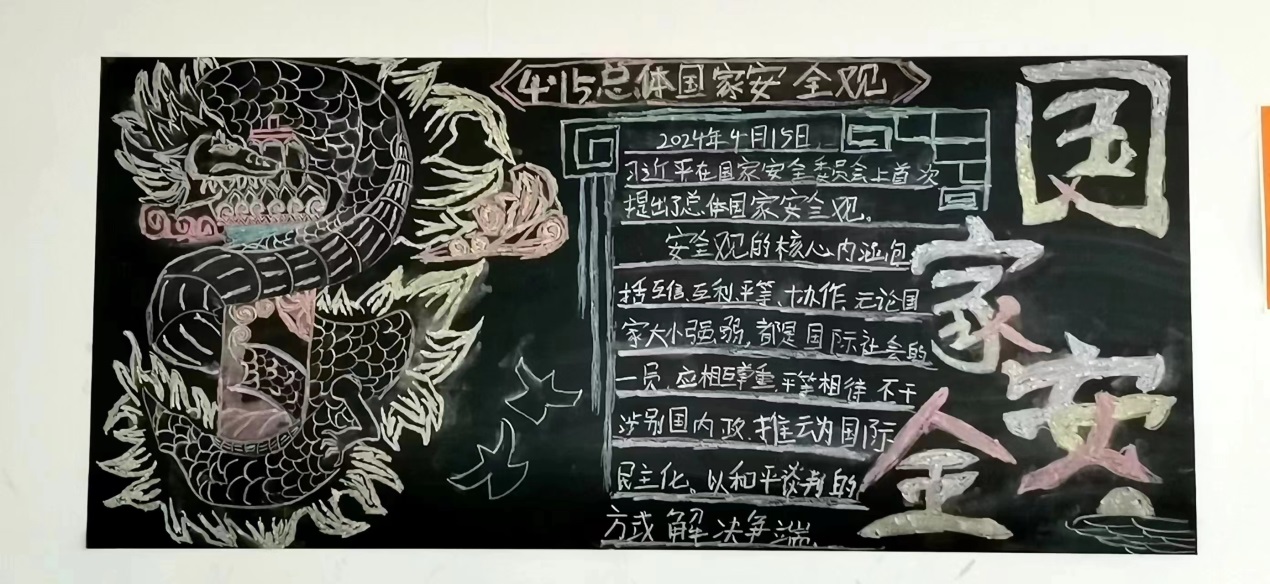 4·15总体国家安全观
2024年4月15日
习近平在国家安全委员会上首次
提出了总体国家安全观。
安全观的核心内涵包
括互信、互利、平等、协作,无论国
家大小强弱,都是国际社会的
一员,应相互尊重,平等相待 不干
涉别国内政,推动国际
民主化。以和平谈判的
方式解决争端.
国
家
安
全